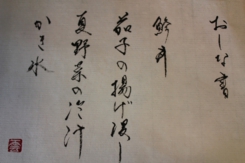 おしな書
鯵丼
茄子の揚げ浸し
夏野菜の冷汁
かき氷